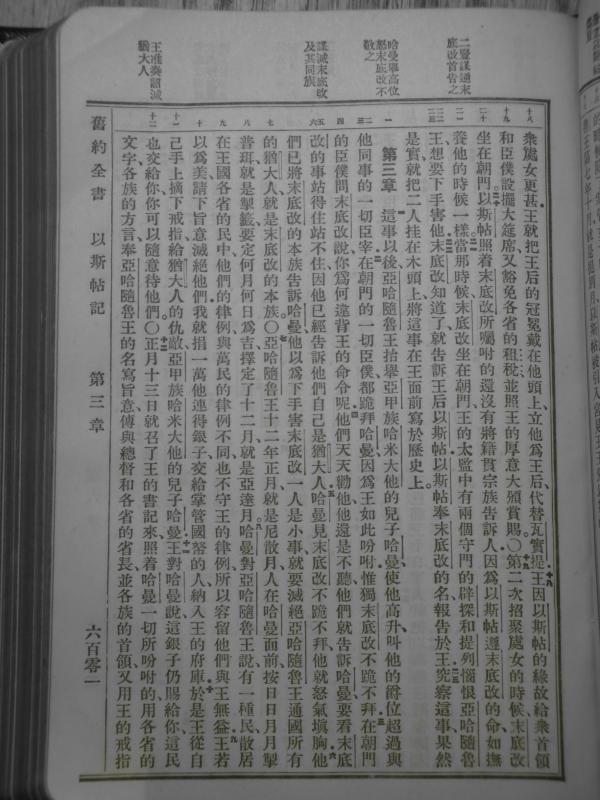 二豎謀逆末
底改首告之
哈曼舉高位
怒末底改不
敬之
謀滅末底改
及其同族
王准奏詔滅
猶大人
衆處女更甚王就把王后的冠冕戴在他頭上立他爲王后代替瓦實提王因以斯帖的緣故給衆首領
和臣僕設擺大筵席又豁免各省的租稅並照王的厚意大頒賞賜〇第二次招聚處女的時候末底改
坐在朝門以斯帖照着末底改所囑咐的還沒有將籍貫宗族告訴人因爲以斯帖遵末底改的命如撫
養他的時候一樣當那時候末底改坐在朝門王的太監中有兩個守門的辟探和提列惱恨亞哈隨魯
王想要下手害他末底改知道了就告訴王后以斯帖以斯帖奉末底改的名報告於王究察這事果然
是實就把二人挂在木頭上將這事在王面前寫於歷史上
第三章 這事以後亞哈隨魯王抬舉亞甲族哈米大他的兒子哈曼使他高升叫他的爵位超過與
他同事的一切臣宰在朝門的一切臣僕都跪拜哈曼因爲王如此吩咐惟獨末底改不跪不拜在朝門
的臣僕問末底改說你爲何違背王的命令呢他們天天勸他他還是不聽他們就告訴哈曼要看末底
改的事站得住站不住因他已經告訴他們自己是猶大人哈曼見末底改不跪不拜他就怒氣塡胸他
們已將末底改的本族告訴哈曼他以爲下手害末底改一人是小事就要滅絕亞哈隨魯王通國所有
的猶大人就是末底改的本族〇亞哈隨魯王十二年正月就是尼散月人在哈曼面前按日日月月掣
普珥就是掣籤要定何月何日爲吉擇定了十二月就是亞達月哈曼對亞哈隨魯王說有一種民散居
在王國各省的民中他們的律例與萬民的律例不同也不守王的律例所以容留他們與王無益王若
以爲美請下旨意滅絕他們我就捐一萬他連得銀子交給掌管國帑的人納入王的府庫於是王從自
己手上摘下戒指給猶大人的仇敵亞甲族哈米大他的兒子哈曼王對哈曼說這銀子仍賜給你這民
也交給你你可以隨意待他們〇正月十三日就召了王的書記來照着哈曼一切所吩咐的用各省的
文字各族的方言奉亞哈隨魯王的名寫旨意傳與總督和各省的省長並各族的首領又用王的戒指
舊約全書 以斯帖記 第三章 六百零一